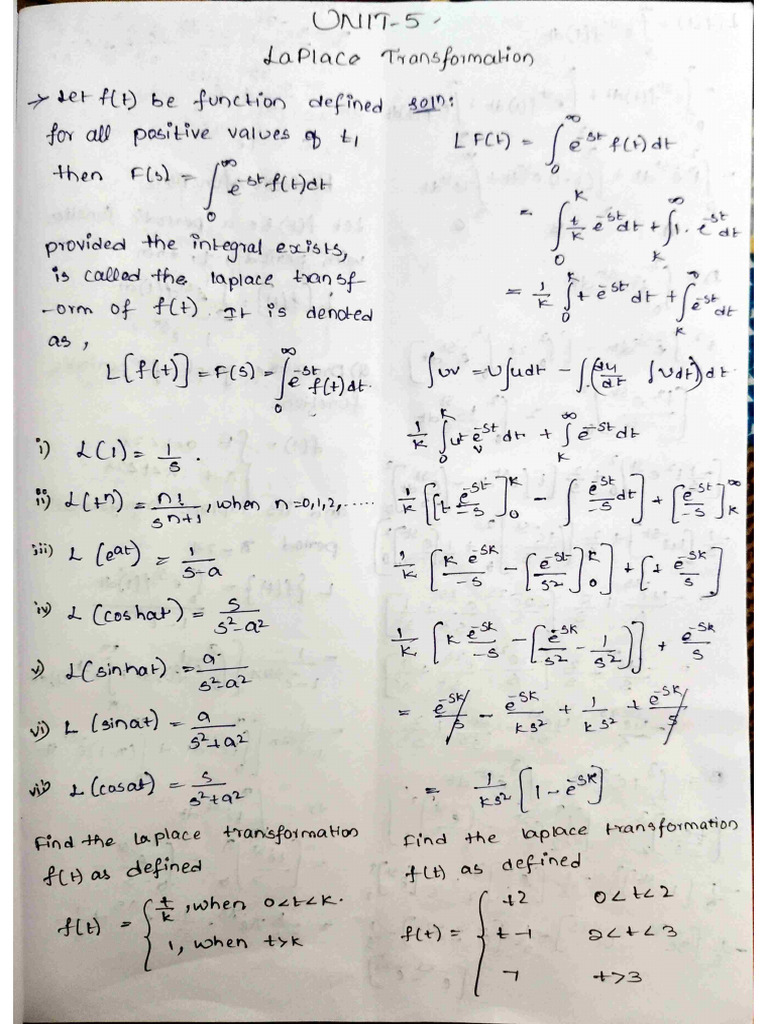 UNIT-5
Laplace Transformation
→ Let f(t) be function defined
for all positive values of t,
then F(s) = ∫₀^∞ e^-st f(t)dt
provided the integral exists,
is called the laplace transf-
-orm of f(t). It is denoted
as,
L[f(t)] = F(s) = ∫₀^∞ e^-st f(t)dt.
i) L(1) = 1/s.
ii) L(t^n) = n!/s^n+1, when n=0,1,2,.....
iii) L(e^at) = 1/s-a
iv) L(coshat) = s/s²-a²
v) L(sinhat) = a/s²-a²
vi) L(sinat) = a/s²+a²
vii) L(cosat) = s/s²+a²
Find the laplace transformation
f(t) as defined
f(t) = { t/k, when 0<t<k.
1, when t>k
soln:
L F(t) = ∫₀^∞ e^-st f(t)dt
= ∫₀^k t/k e^-st dt + ∫_k^∞ 1. e^-st dt
= 1/k ∫₀^k t e^-st dt + ∫_k^∞ e^-st dt
∫uv = u∫vdt - ∫(du/dt ∫vdt)dt.
1/k ∫₀^k ut e^-st v dt + ∫_k^∞ e^-st dt
1/k [[t e^-st/-s]₀^k - ∫ e^-st/-s dt] + [e^-st/-s]_k^∞
1/k [k e^-sk/-s - [e^-st/s²]₀^k] + [+ e^-sk/s]
1/k [k e^-sk/-s - [e^-sk/s² - 1/s²)] + e^-sk/s
= e^-sk/s - e^-sk/ks² + 1/ks² + e^-sk/s
= 1/ks² [1 - e^-sk]
Find the laplace transformation
f(t) as defined
f(t) = { t2 0<t<2
t-1 2<t<3
7 t>3